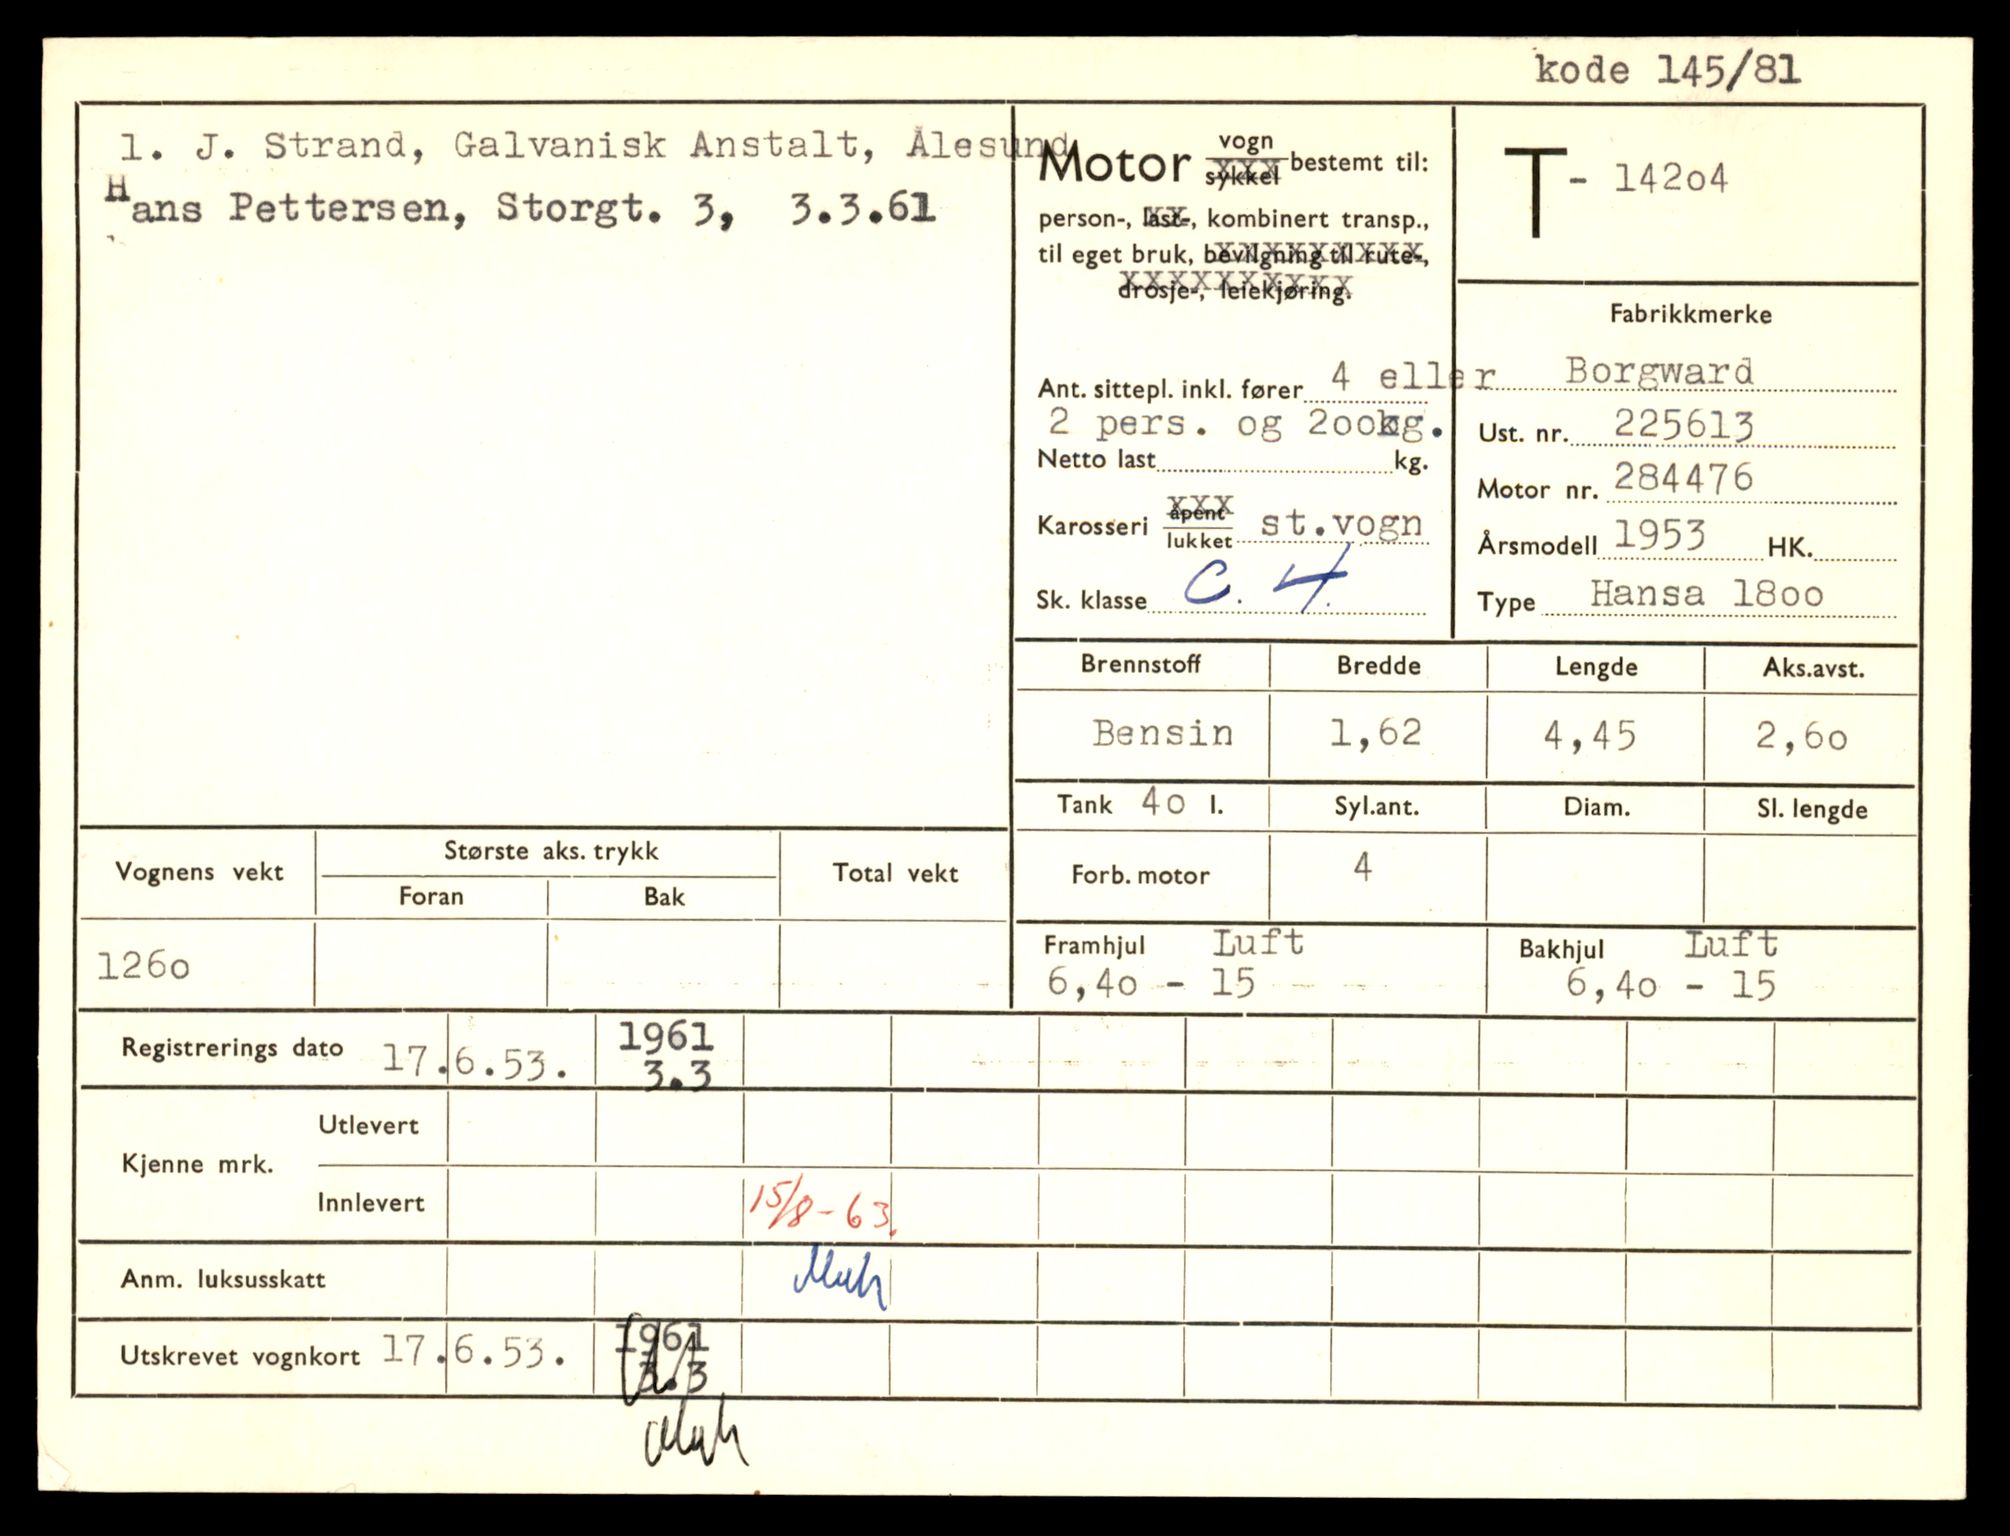 kode 145/81
1. J. Strand, Galvanisk Anstalt, Ålesund
Hans Pettersen, Storgt. 3, 3.3.61
Motor vogn
sykkel bestemt til:
person-, last-, kombinert transp.,
til eget bruk, bevilgning til rute-,
drosje-, leiekjøring.
Ant. sittepl. inkl. fører 4 eller
2 pers. og 2ookg.
Netto last kg.
Karosseri åpent
lukket st.vogn
Sk. klasse C. 4.
T - 142o4
Fabrikkmerke
Borgward
Ust. nr. 225613
Motor nr. 284476
Årsmodell 1953 HK.
Type Hansa 18oo
Brennstoff Bredde Lengde Aks.avst.
Bensin 1,62 4,45 2,6o
Tank 4o l. Syl.ant. Diam. Sl. lengde
Forb. motor 4
Framhjul Luft Bakhjul Luft
6,4o - 15 6,4o - 15
Vognens vekt Største aks. trykk Total vekt
Foran Bak
126o
Registrerings dato 17.6.53. 1961
3.3
Kjenne mrk. Utlevert
Innlevert 15/8-63.
Anm. luksusskatt
Utskrevet vognkort 17.6.53. 1961
3.3